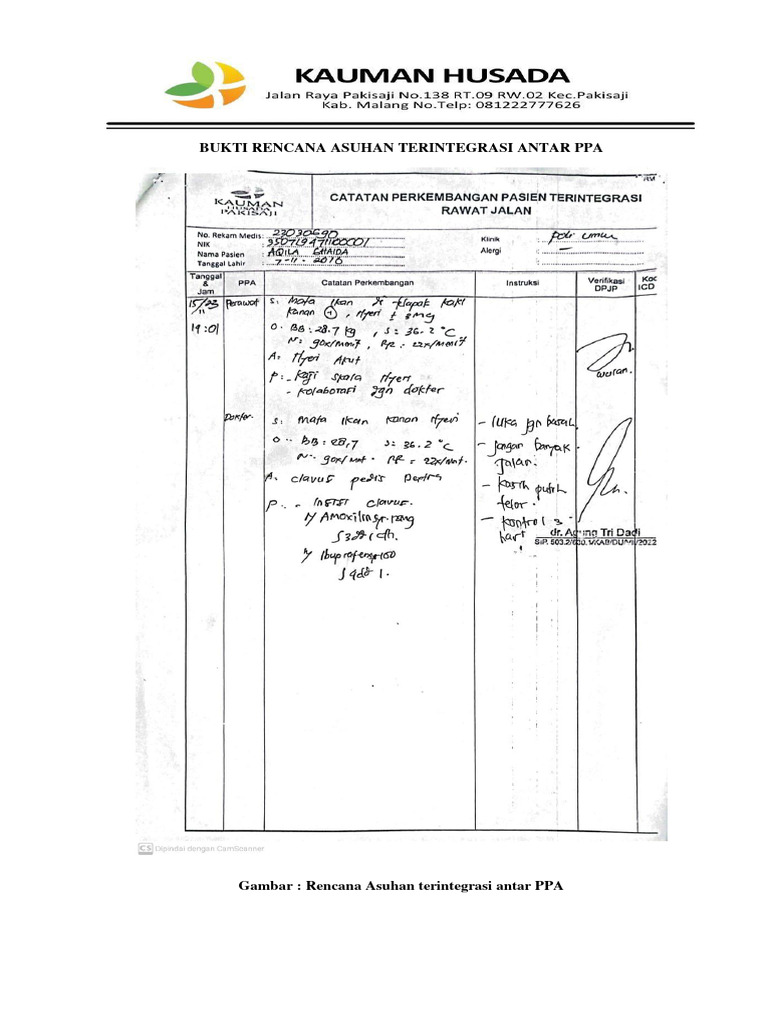 KAUMAN HUSADA
Jalan Raya Pakisaji No.138 RT.09 RW.02 Kec.Pakisaji
Kab. Malang No.Telp: 081222777626
BUKTI RENCANA ASUHAN TERINTEGRASI ANTAR PPA
RM
KAUMAN
HUSADA
PAKISAJI
CATATAN PERKEMBANGAN PASIEN TERINTEGRASI
RAWAT JALAN
No. Rekam Medis: 23030690
NIK :
Nama Pasien : AQILA GHAIDA
Tanggal Lahir : 7-11-2016
Klinik : poli umum
Alergi : –
Tanggal & Jam
PPA
Catatan Perkembangan
Instruksi
Verifikasi DPJP
Koc
ICD
15/23
11
19:01
Perawat
S: Mata Ikan di telapak kaki
kanan, Nyeri ± 3mg
O: BB: 28.7 kg, S: 36.2 °C
N: 90x/menit, RR: 22x/menit
A: Nyeri Akut
P: - Kaji skala Nyeri
- kolaborasi dgn dokter
wulan.
Dokter
S: Mata Ikan kanan Nyeri
O: BB: 28,7 S: 36.2 °C
N: 90x/mnt. RR = 22x/mnt.
A. clavus pedis dextra
P: - Insisi clavus.
R/ Amoxilin
S 3dd 1 cth.
R/ Ibuprofen
S 4dd 1.
- luka jgn basah
- jangan banyak
jalan.
- kasih putih
telor.
- kontrol 3
hari
dr. Agung Tri Dadi
Dipindai dengan CamScanner
Gambar : Rencana Asuhan terintegrasi antar PPA